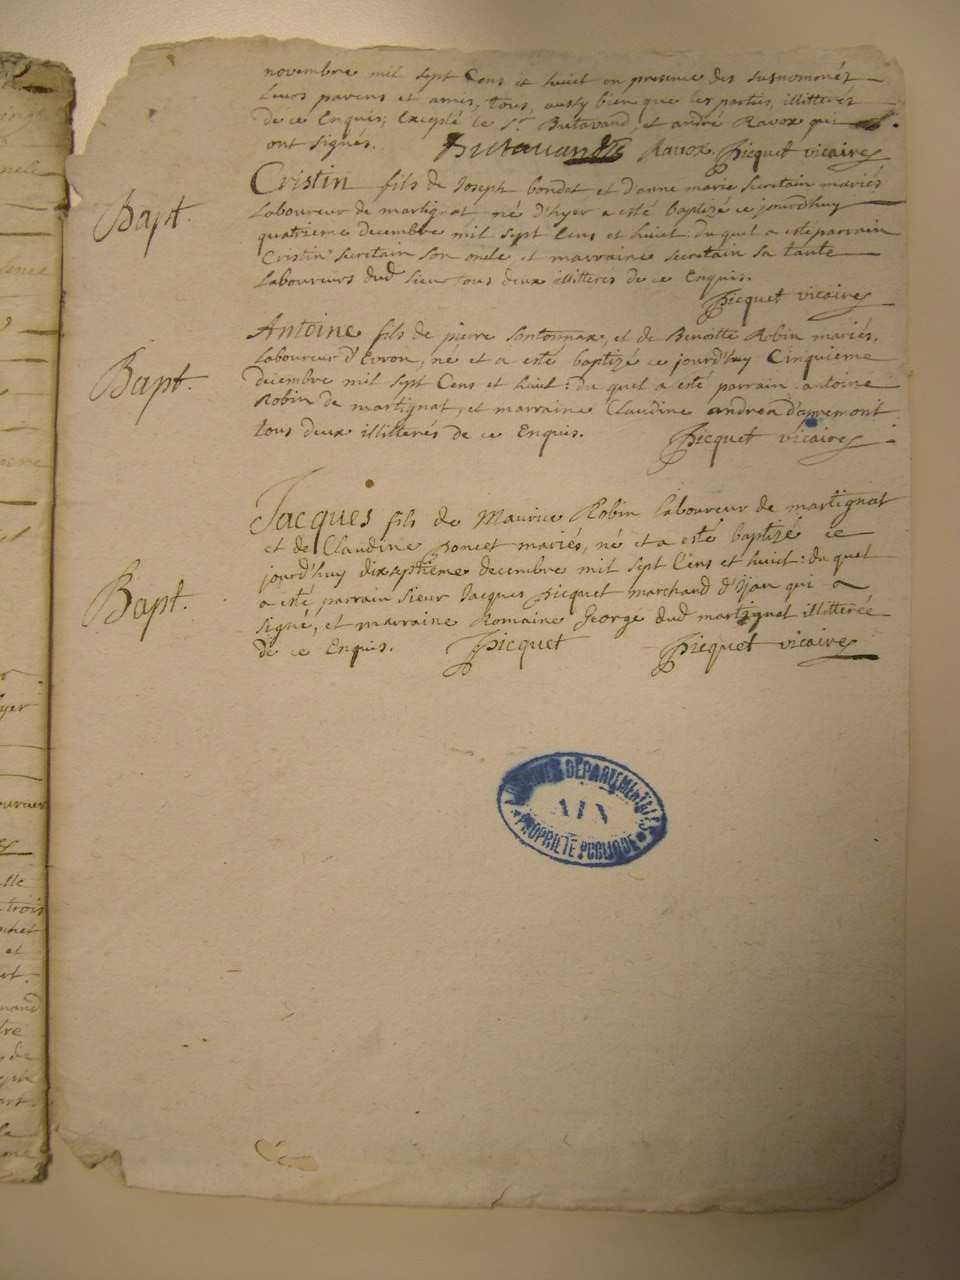 novembre mil sept Cens et huict en presence des susnommés
leurs parens et amis, tous, aussy bien que les parties, illitterés
de ce Enquis; Excepté le Sr. Butavand, et andré Ravox qui
ont signés. Butavand Ravox Picquet vicaire
Bapt. Cristin fils de Joseph bondet et d'anne marie Secretain mariés
Laboureur de martignat né d'hyer a esté baptizé ce jourd'huy
quatrieme decembre mil sept Cens et huict: du quel a esté parrain
Cristin Secretain son oncle et marraine Secretain sa tante
Laboureurs dud lieu tous deux illitterés de ce Enquis.
Picquet vicaire
Bapt. Antoine fils de pierre Sontonnax, et de Benoitte Robin mariés,
Laboureur d'Evron, né et a esté baptizé ce jourd'huy Cinquieme
decembre mil sept Cens et huict: du quel a esté parrain antoine
Robin de martignat, et marraine Claudine andrea d'apremont
tous deux illitterés de ce Enquis. Picquet vicaire
Bapt. Jacques fils de Maurice Robin laboureur de martignat
et de Claudine poncet mariés, né et a esté baptizé ce
jourd'huy dixseptieme decembre mil sept Cens et huict: du quel
a esté, parrain sieur Jacques Picquet marchand d'Ijan qui a
signé, et marraine Romaine George dud martignat illitterée
de ce Enquis. Picquet Picquet vicaire
ARCHIVES DÉPARTEMENTALES
AIN
PROPRIÉTÉ PUBLIQUE